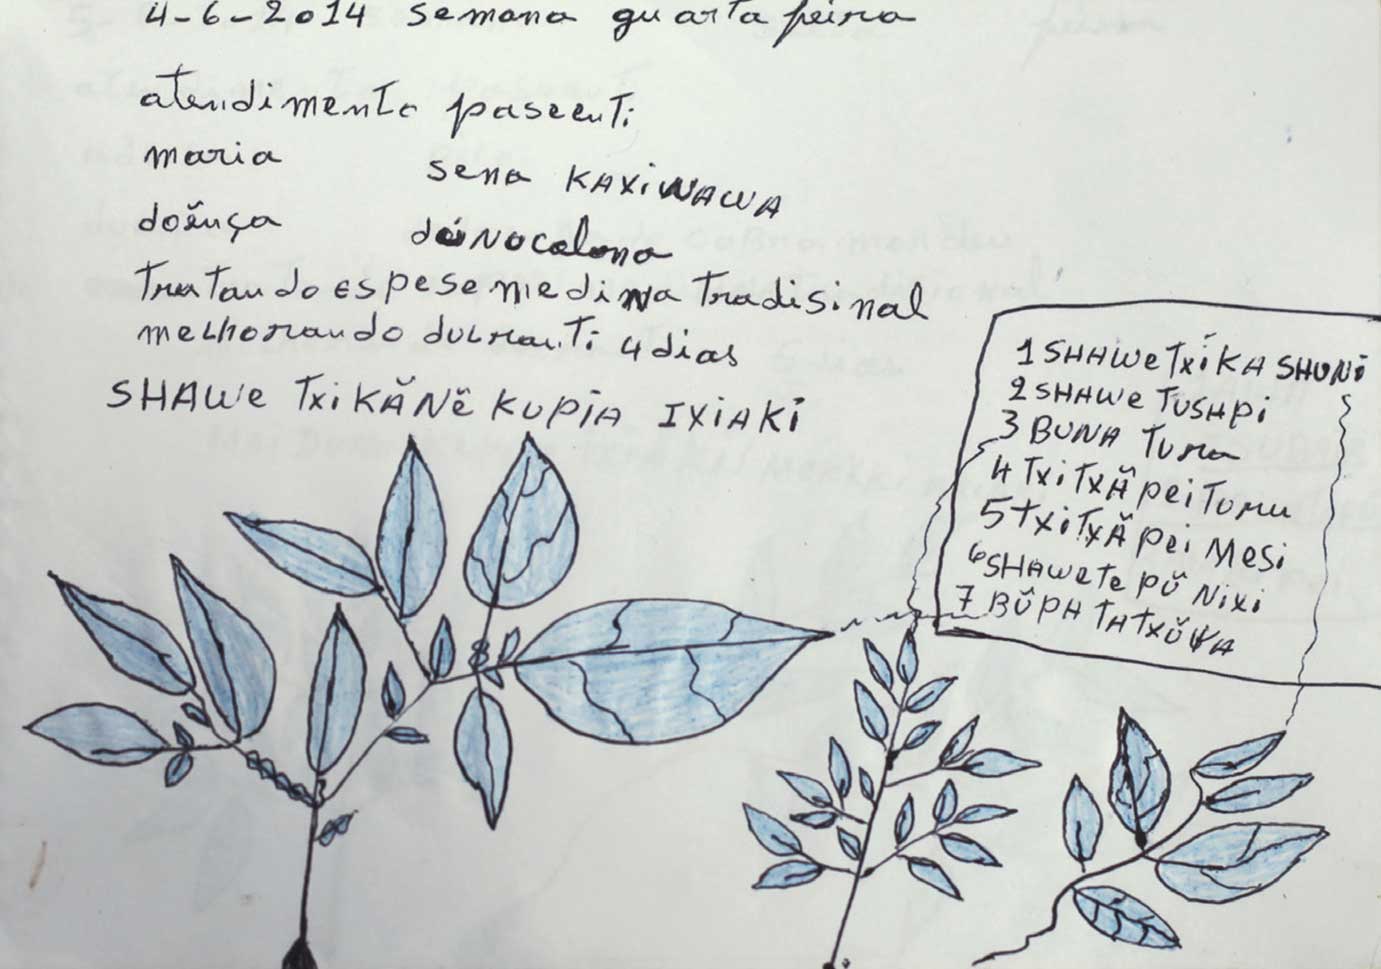 4-6-2014 semana quarta feira
atendimento paseenti
maria sena KAXiNAWA
doẽnça dóiNocolona
Tratando espese medina Tradisinal
melhorando durranti 4 dias
SHAWe TxiKÃNẽ KUPiA IXiAKi
1 SHAWe TxíKA SHUNi
2 SHAWe TUSHPi
3 BUNA Tuma
4 TxiTXÃ pei Tumu
5 TxiTXÃ pei Mesi
6 SHAWeTe PŨ Nixi
7 BŨPA TATXŨKA